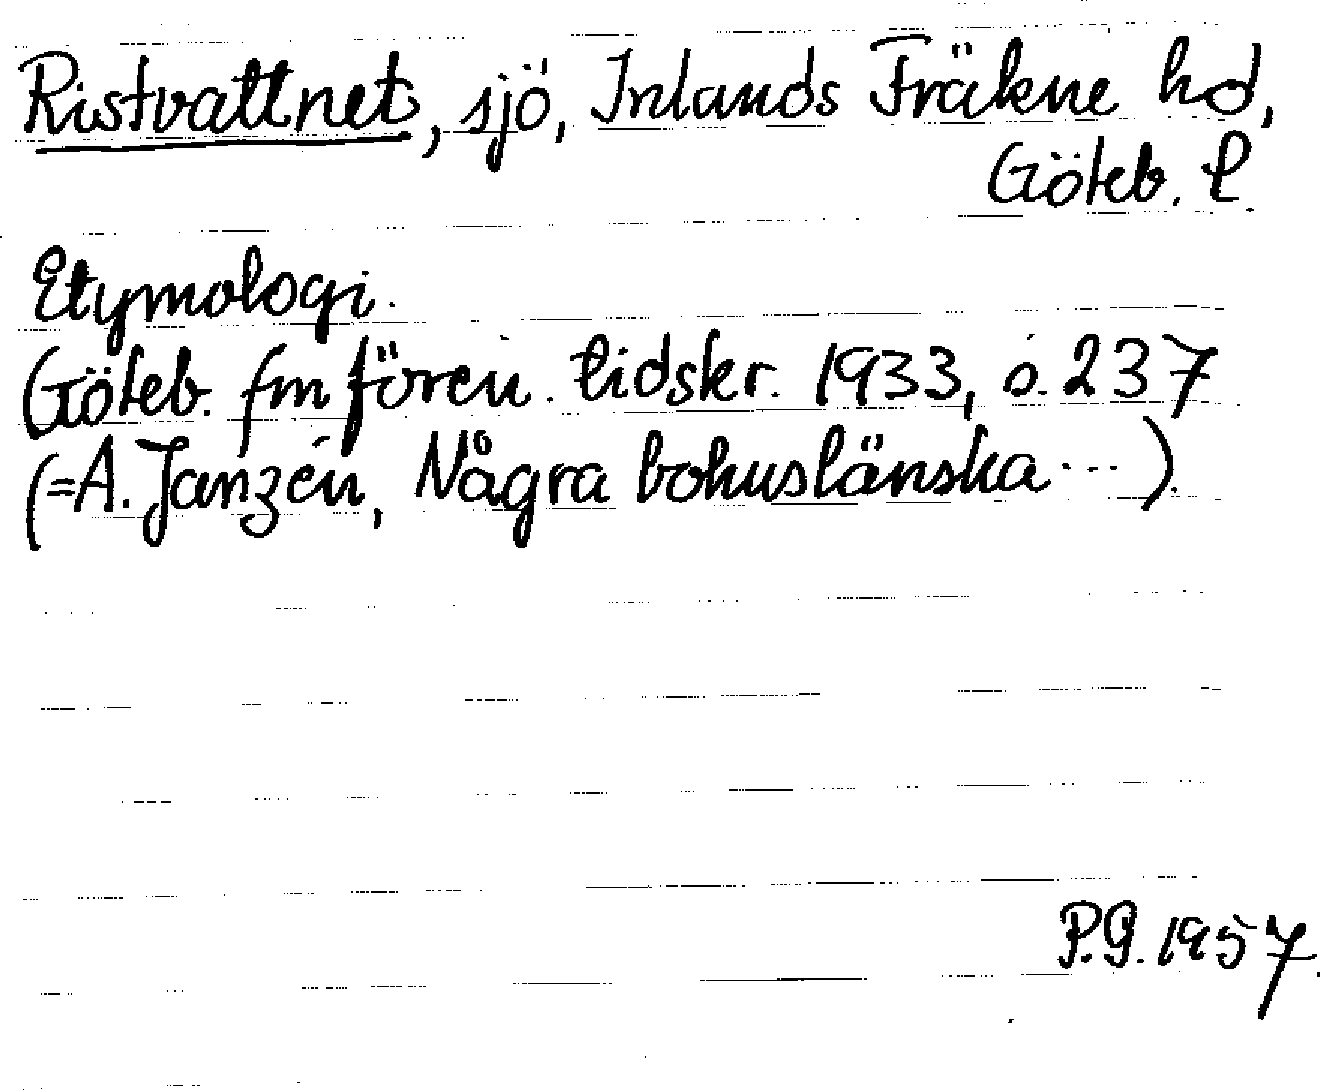 Ristvattnet, sjö, Inlands Fräkne hd,
Göteb. l
Etymologi.
Göteb. fm fören. tidskr. 1933, s. 237
(=A. Janzén, Några bohuslänska...).
P.G. 1957.